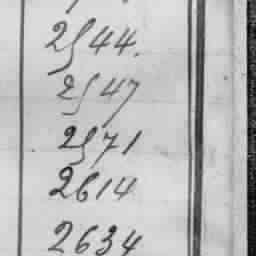 2544.
2547
2571
2614
2634